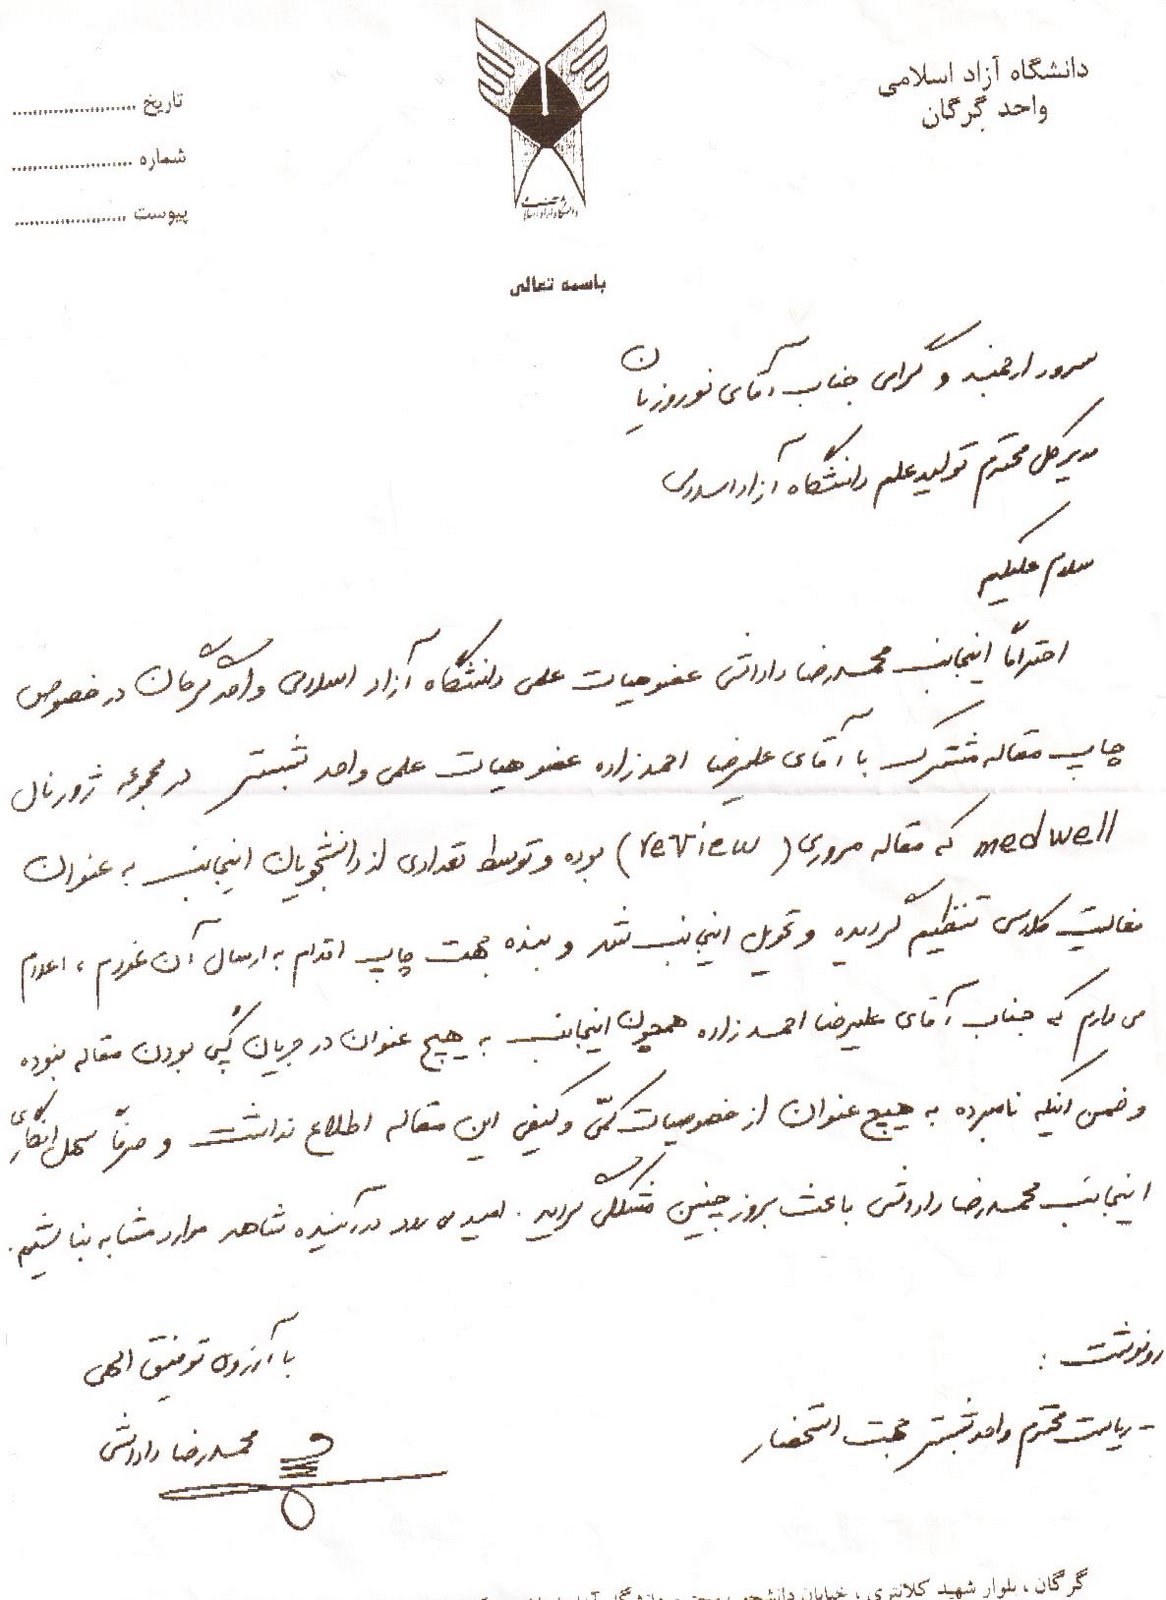 دانشگاه آزاد اسلامی
واحد گرگان
تاریخ ........................
شماره ........................
پیوست ........................
دانشگاه آزاد اسلامی
باسمه تعالی
سرور ارجمند و گرامی جناب آقای نوروزیان
مدیر کل محترم تولید علم دانشگاه آزاد اسلامی
سلام علیکم
احتراماً اینجانب محمدرضا داداشی عضو هیات علمی دانشگاه آزاد اسلامی واحد گرگان در خصوص
چاپ مقاله مشترک با آقای علیرضا احمدزاده عضو هیات علمی واحد شبستر در مجموعه ژورنال
medwell که مقاله مروری (review) بوده و توسط تعدادی از دانشجویان اینجانب به عنوان
فعالیت کلاسی تنظیم گردیده و تحویل اینجانب شد و بنده جهت چاپ اقدام به ارسال آن نمودم ، اعلام
می دارم که جناب آقای علیرضا احمدزاده همچون اینجانب به هیچ عنوان در جریان کپی بودن مقاله نبوده
و ضمن اینکه نامبرده به هیچ عنوان از خصوصیات کمّی و کیفی این مقاله اطلاع نداشت و صرفاً سهل انگاری
اینجانب محمدرضا داداشی باعث بروز چنین مشکلی گردید . امید در آینده شاهد موارد مشابه نباشیم .
با آرزوی توفیق الهی
محمدرضا داداشی
رونوشت :
- ریاست محترم واحد شبستر جهت استحضار
گرگان ، بلوار شهید کلانتری ، خیابان